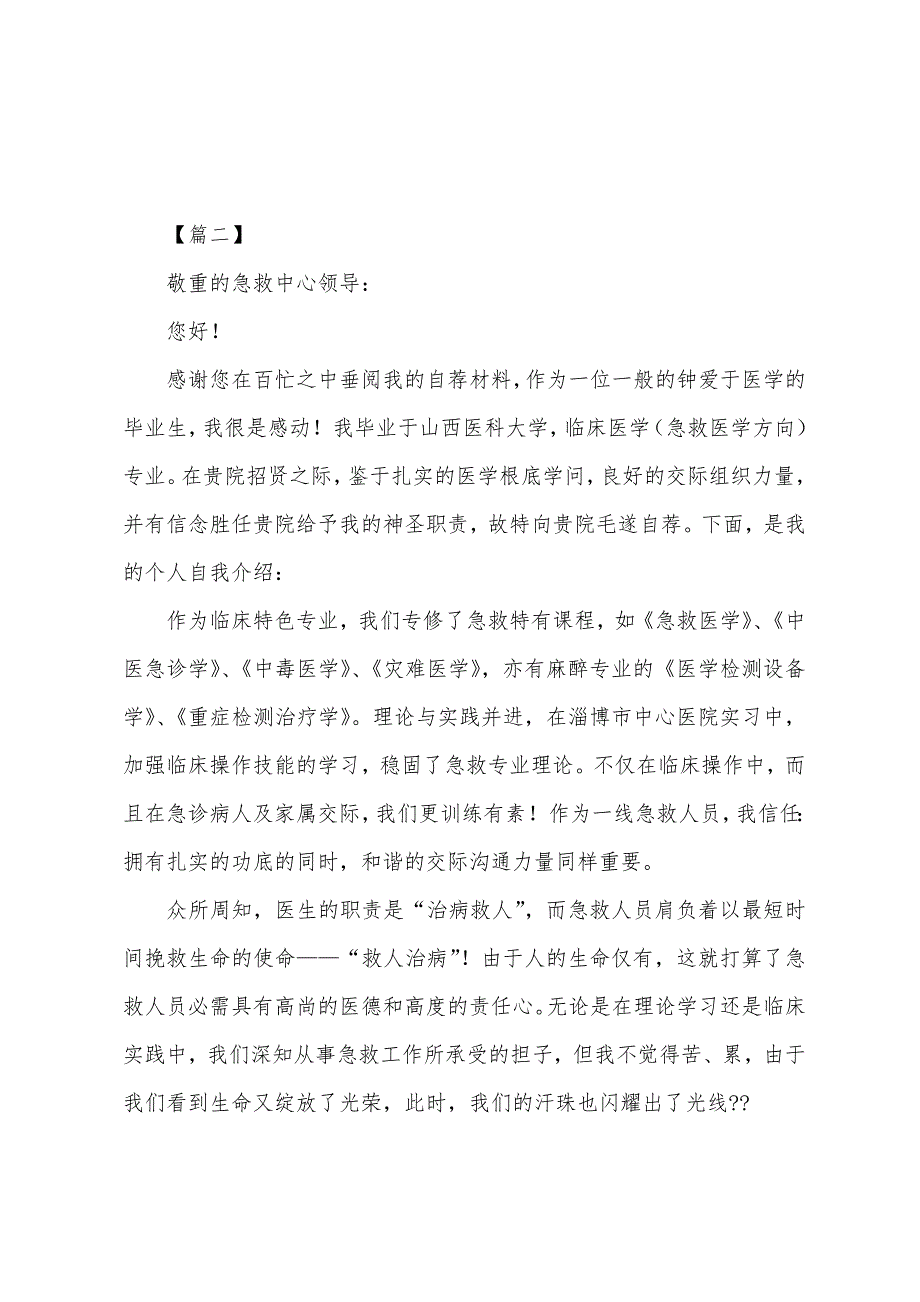 【篇二】
敬重的急救中心领导：
您好！
感谢您在百忙之中垂阅我的自荐材料，作为一位一般的钟爱于医学的
毕业生，我很是感动！我毕业于山西医科大学，临床医学（急救医学方向）
专业。在贵院招贤之际，鉴于扎实的医学根底学问，良好的交际组织力量，
并有信念胜任贵院给予我的神圣职责，故特向贵院毛遂自荐。下面，是我
的个人自我介绍：
作为临床特色专业，我们专修了急救特有课程，如《急救医学》、《中
医急诊学》、《中毒医学》、《灾难医学》，亦有麻醉专业的《医学检测设备
学》、《重症检测治疗学》。理论与实践并进，在淄博市中心医院实习中，
加强临床操作技能的学习，稳固了急救专业理论。不仅在临床操作中，而
且在急诊病人及家属交际，我们更训练有素！作为一线急救人员，我信任：
拥有扎实的功底的同时，和谐的交际沟通力量同样重要。
众所周知，医生的职责是“治病救人”，而急救人员肩负着以最短时
间挽救生命的使命——“救人治病”！由于人的生命仅有，这就打算了急
救人员必需具有高尚的医德和高度的责任心。无论是在理论学习还是临床
实践中，我们深知从事急救工作所承受的担子，但我不觉得苦、累，由于
我们看到生命又绽放了光荣，此时，我们的汗珠也闪耀出了光线??